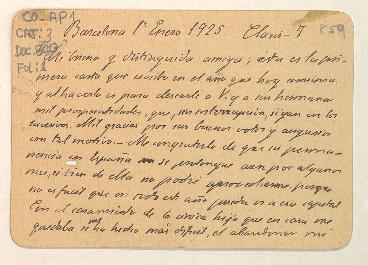 CO-AP1
CAT: 2
DOC:
FOL: 1
859
Barcelona 1º Enero 1925. Claris-7
Mi buena y distinguida amiga; esta es la pri-
mera carta que escribo en el año que hoy comienza
y al hacerlo es para desearle a V. y a sus hermanas
mil prosperidades, que, sin interrupción, sigan en los
sucesivos. Mil gracias por sus buenos votos y augurios
con tal motivo. - Me congratulo de que su perma-
nencia en España se prolongue aun por algunos
mes, si bien de ella no podré aprovecharme, porque
no es facil que en todo este año pueda ir a esa capital
Con el casamiento de la única hija que en casa me
quedaba se me ha hecho más dificil, el abandonar mi